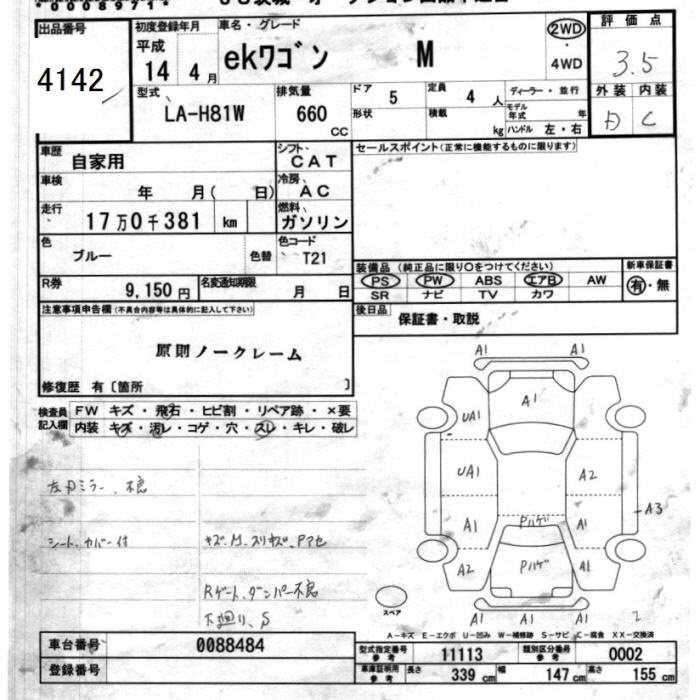 出品番号
4142
初度登録年月
平成
14 4月
車名・グレード
ekワゴン M
2WD
・
4WD
評価点
3.5
外装 内装
D C
型式
LA-H81W
排気量
660
CC
ドア
5
形状
定員
4 人
積載
kg
ディーラー・並行
モデル
年式 年
ハンドル 左・右
車歴
自家用
シフト
CAT
車検
年 月( 日)
冷房
AC
走行
17万0千381 km
燃料
ガソリン
色
ブルー
色替
色コード
T21
R券
9,150円
名変通知期限
月 日
セールスポイント(正常に機能するものに限ります)
装備品 (純正品に限り○をつけてください)
PS PW ABS エアB AW
SR ナビ TV カワ
新車保証書
有・無
後日品
保証書・取説
注意事項申告欄(不具合内容等は具体的に記入して下さい)
原則ノークレーム
修復歴 有〔箇所 〕
検査員
記入欄
FW キズ・飛石・ヒビ割・リペア跡・×要
内装 キズ・汚レ・コゲ・穴・スレ・キレ・破レ
左Dミラー、不良
シート、カバー付
キズ、M、スリキズ、Pアセ
Rゲート、ダンパー不良
下廻り、S
A1 A1
A1
UA1
UA1 A2
A3
Pハゲ
A1 A1
A2 Pハゲ A1
スペア
A1 A1
2
A-キズ E-エクボ U-凹み W-補修跡 S-サビ C-腐食 XX-交換済
車台番号
0088484
登録番号
型式指定番号
参考
11113
類別区分番号
参考
0002
車庫証明用
参考
長さ
339 cm
幅
147 cm
高さ
155 cm